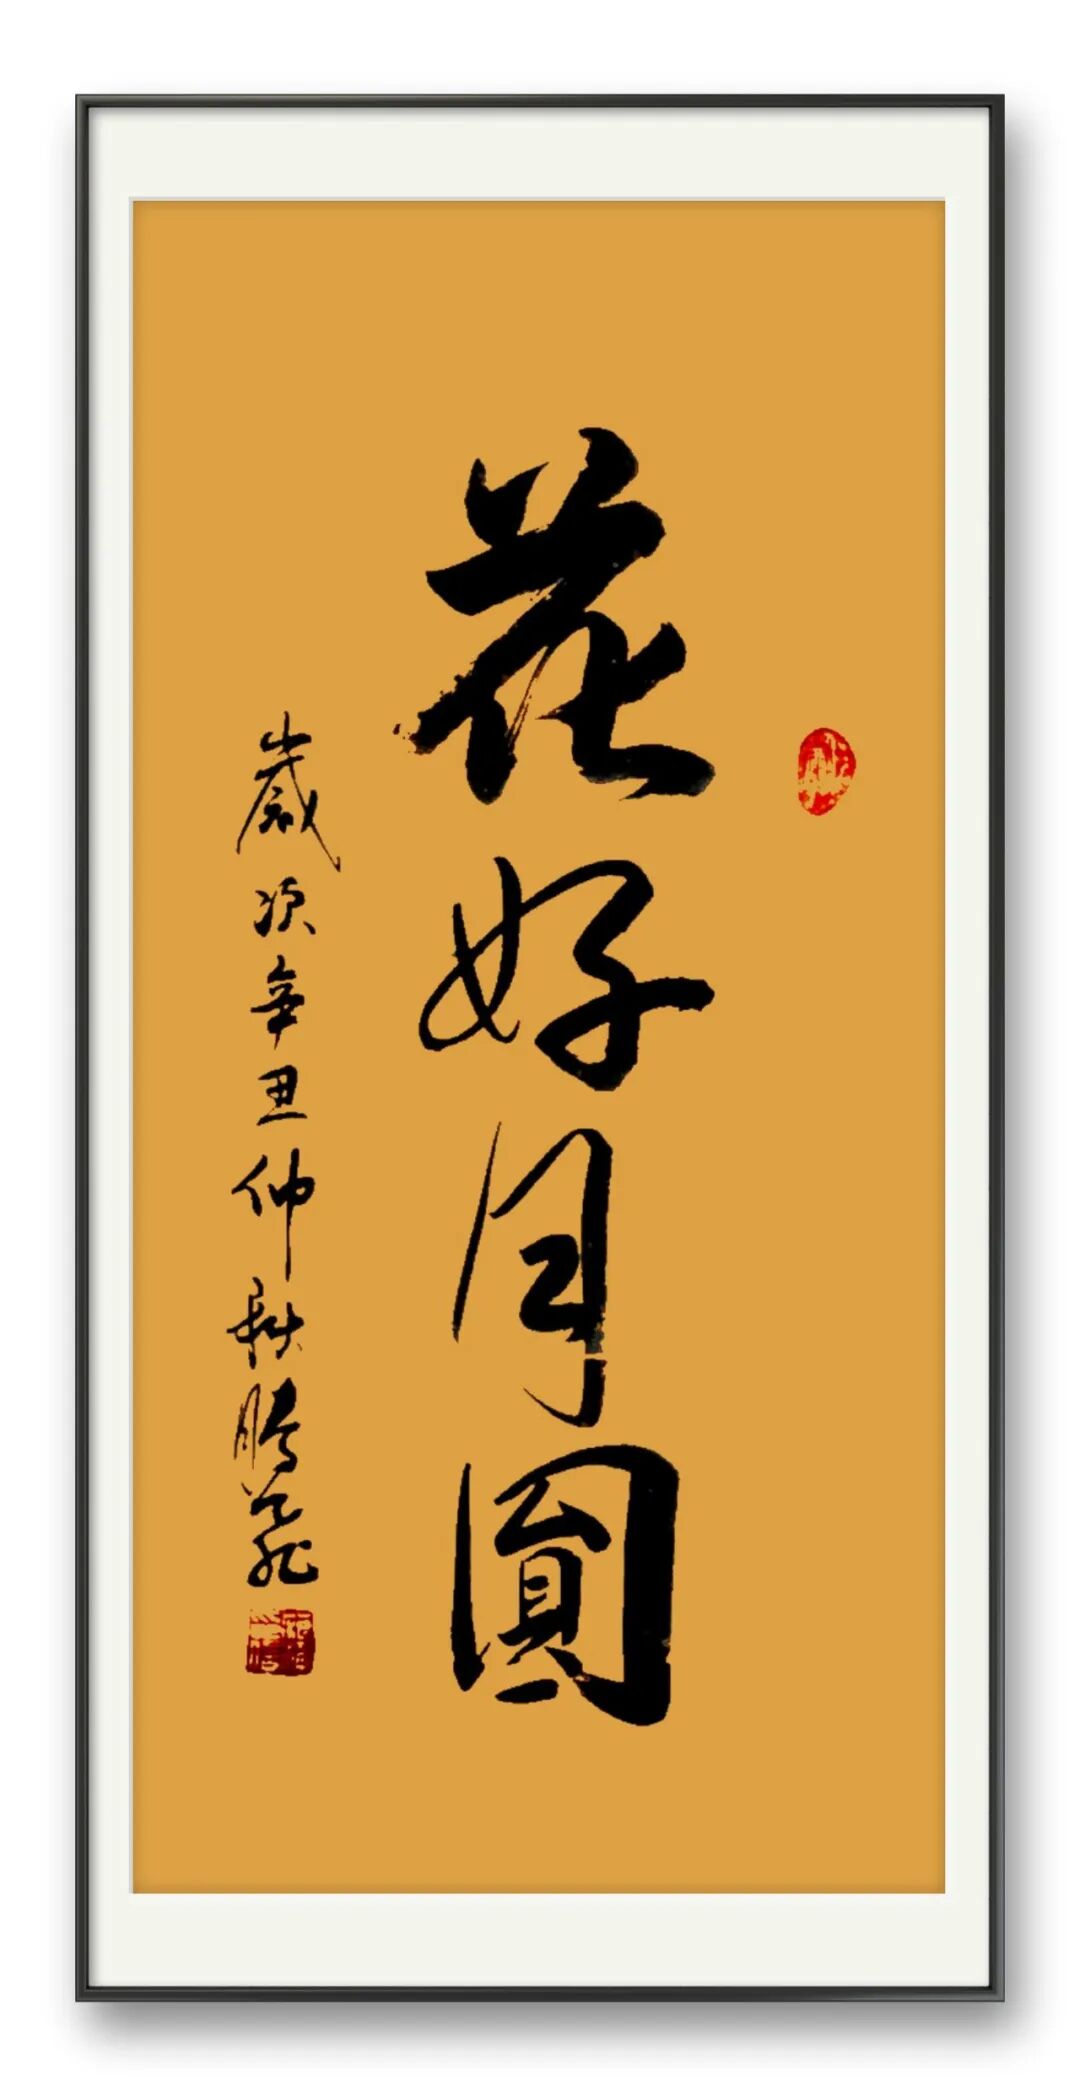 花好月圓
歲次辛丑仲秋鵬飛